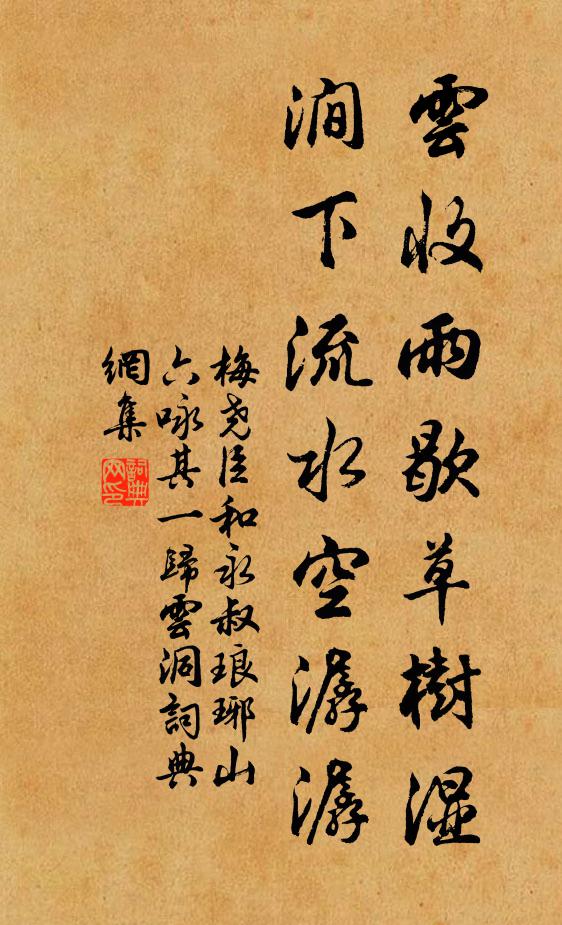 雲收雨歇草樹湿
澗下流水空潺潺
梅尧臣和永叔琅琊山
六咏其一歸雲洞詞典
網集
詞典
网印